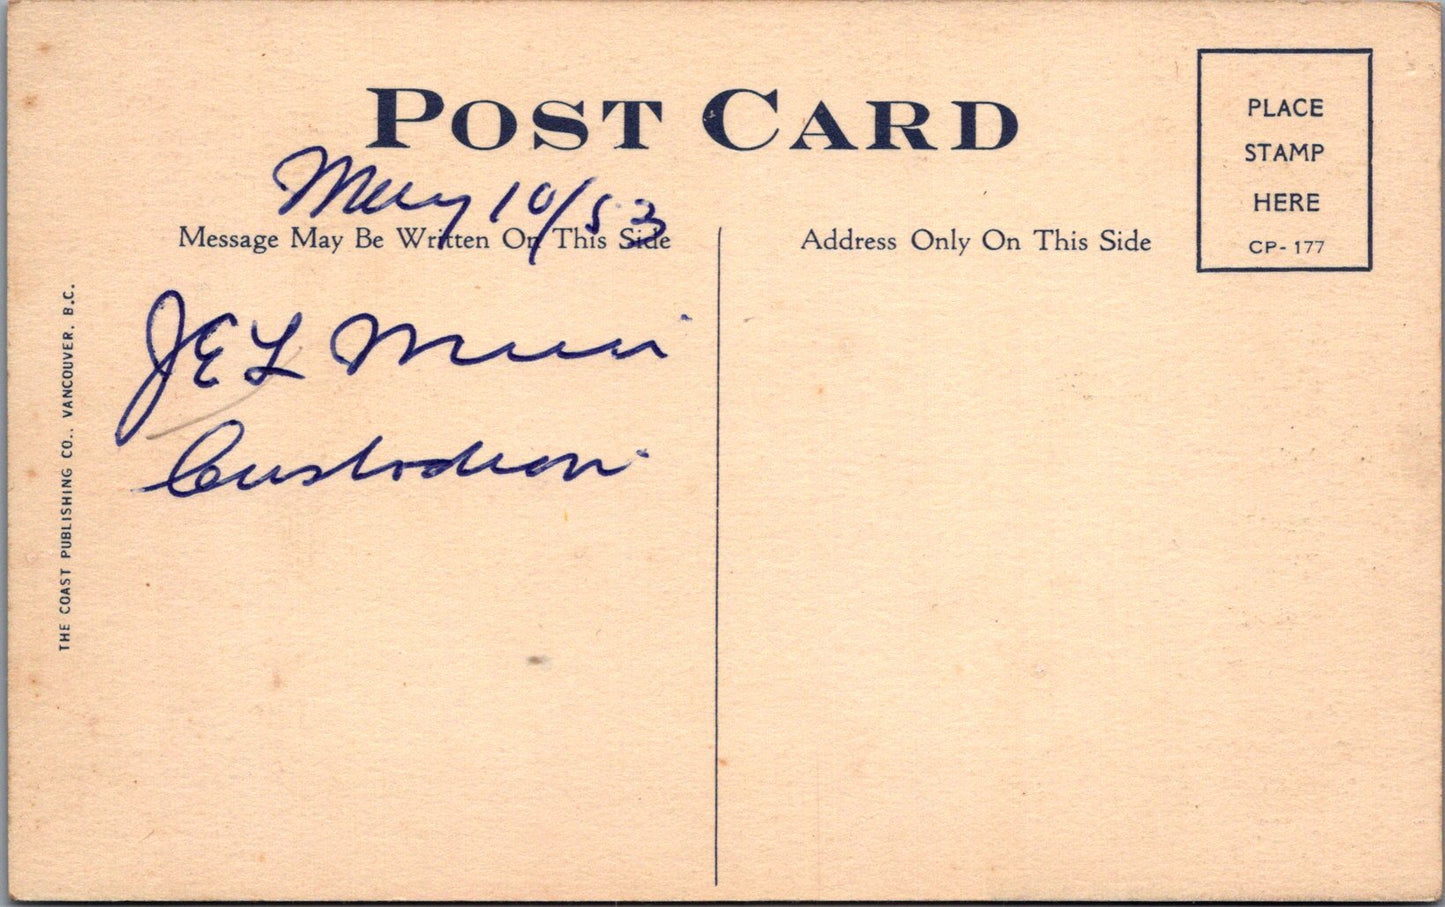 POST CARD
PLACE
STAMP
HERE
CP-177
May 10/53
Message May Be Written On This Side
Address Only On This Side
J E L Muir
Custodian
THE COAST PUBLISHING CO., VANCOUVER, B.C.